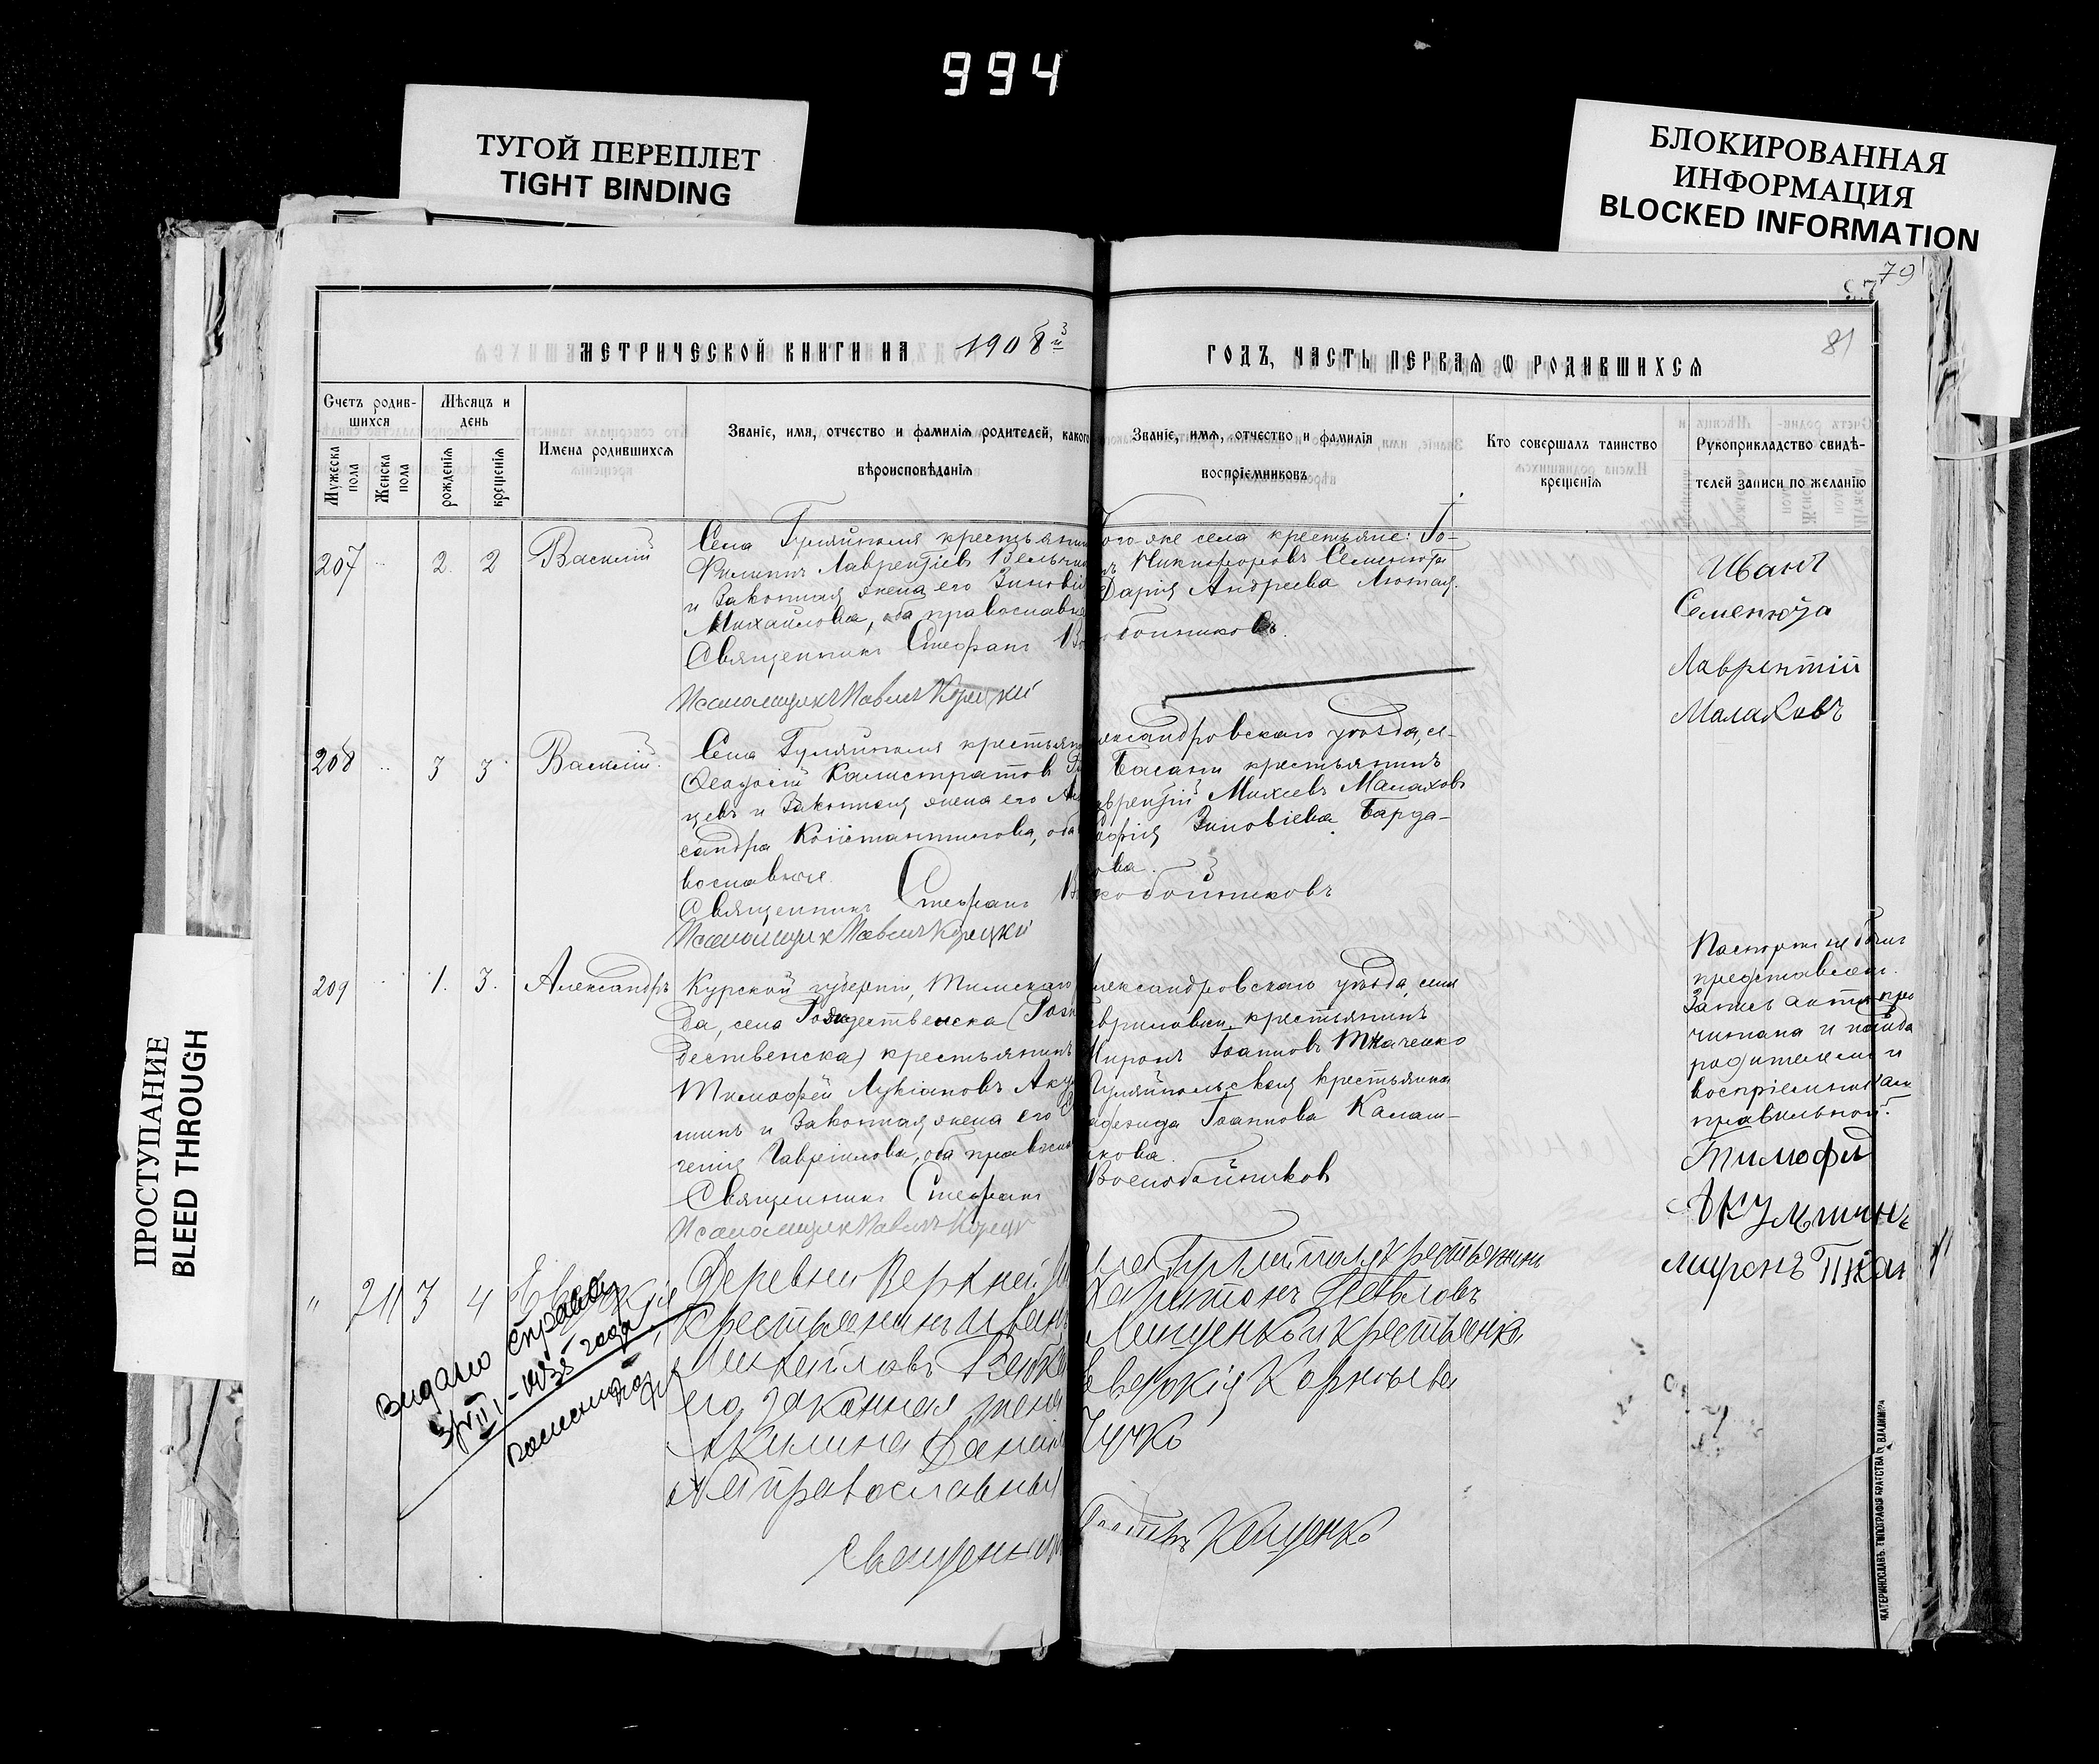 994
ТУГОЙ ПЕРЕПЛЕТ
TIGHT BINDING
БЛОКИРОВАННАЯ
ИНФОРМАЦИЯ
BLOCKED INFORMATION
ПРОСТУПАНИЕ
BLEED THROUGH
79
81
МЕТРИЧЕСКОЙ КНИГИ НА 1908 й
ГОДЪ, ЧАСТЬ ПЕРВАѦ Ѡ РОДИВШИХСѦ
Счетъ родив-
шихся
Мужеска пола
Женска пола
Мѣсяцъ и
день
рожденія
крещенія
Имена родившихся
Званіе, имя, отчество и фамилія родителей, какого
вѣроисповѣданія
Званіе, имя, отчество и фамилія
воспріемниковъ
Кто совершалъ таинство
крещенія
Рукоприкладство свидѣ-
телей записи по желанію
207 2 2 Василій
Села Гуляйполя крестьянин
Филиппъ Лаврентіевъ
и законная жена его Зиновія
Михайлова, оба православн
Священникъ Стефанъ
Псаломщикъ Павелъ Корецкій
того же села крестьяне:
Никифоровъ Семенюта
Дарія Андреева Лютая.
бойниковъ.
Иванъ
Семенюта
Лаврентій
Малаховъ
208 3 3 Василій
Села Гуляйполя крестьян
Феодосій Калистратов
цевъ и законная жена его
сандра Константинова, оба
вославные.
Священникъ Стефанъ
Псаломщикъ Павелъ Корецкій
лександровскаго уѣзда, се-
Басани крестьянинъ
врентій Михеевъ Малаховъ
офія Зиновіева Барда-
ова.
бойниковъ
209 1. 3. Александръ
Курской губерніи, Тимскаго
да, села Рождественска
дественска) крестьянинъ
Тимофей Лукіановъ Аку
шинъ и законная жена его
Гавріилова, оба правосл
Священникъ Стефанъ
Псаломщикъ Павелъ Корецк
лександровскаго уѣзда, села
вриловки, крестьянинъ
Миронъ Іоанновъ Ткаченко
Гуляйпольская крестьянка
Іоаннова Калаш-
кова.
Воскобойников
Паспортъ не былъ
представлен.
Запись акта про
читана и
родителями и
воспріемникам
правильной.
Тимофей
Акульшинъ
Миронъ Ткач
" 211 3 4
Деревни Верхней
крестьянинъ Иванъ
Михайловъ
его законная жена
Акилина Данил
оба православны
Священник
ла Гуляйполя крестьянин
Харитонъ Павловъ
Лищенко и крестьянка
Евдокія Корнѣева
Чучко
Кащенко
Видано справку
года
ЕКАТЕРИНОСЛАВЪ. ТИПОГРАФІЯ БРАТСТВА СВ. ВЛАДИМІРА